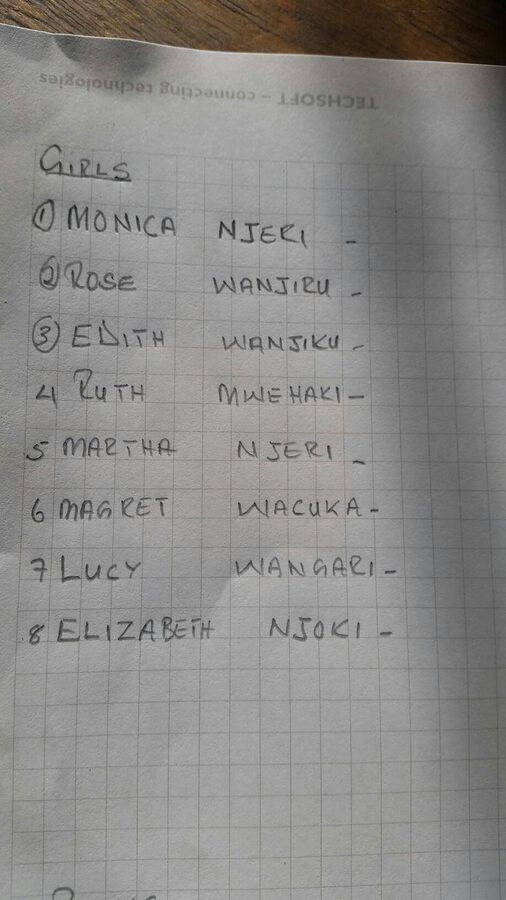 TECHSOFT – connecting technologies
GIRLS
① MONICA NJERI -
② ROSE WANJIRU -
③ EDITH WANJIKU -
4 RUTH MWEHAKI -
5 MARTHA NJERI -
6 MAGRET WACUKA -
7 LUCY WANGARI -
8 ELIZABETH NJOKI -